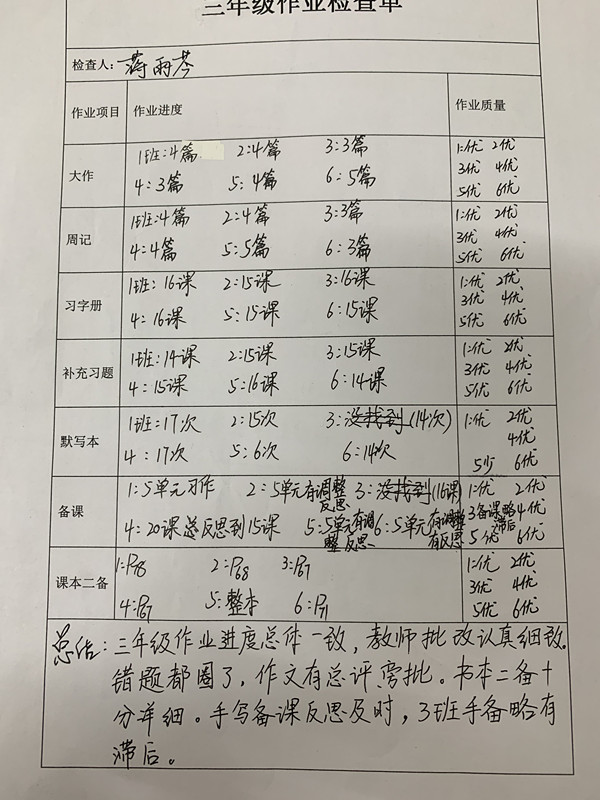 三年级作业检查单
检查人：蒋雨芩
作业项目 作业进度 作业质量
大作 1班：4篇 2：4篇 3：3篇 1：优 2优
4：3篇 5：4篇 6：5篇 3优 4优
5优 6优
周记 1班：4篇 2：4篇 3：3篇 1：优 2优
4：4篇 5：5篇 6：3篇 3优 4优
5优 6优
习字册 1班：16课 2：15课 3：16课 1：优 2优
4：16课 5：15课 6：15课 3优 4优
5优 6优
补充习题 1班：14课 2：15课 3：15课 1：优 2优
4：15课 5：16课 6：14课 3优 4优
5优 6优
默写本 1班：17次 2：15次 3：没找到（14次） 1：优 2优
4：17次 5：6次 6：14次 4优
5少 6优
备课 1：5单元习作 2：5单元有调整反思 3：没找到（16课） 1：优 2优
4：20课总反思到15课 5：5单元有调整反思 6：5单元有调整有反思 3备课略滞后 4优
5优 6优
课本二备 1：P78 2：P68 3：P67 1：优 2优
4：P67 5：整本 6：P71 3优 4优
5优 6优
总结：三年级作业进度总体一致，教师批改认真细致。
错题都圈了，作文有总评、旁批。书本二备十
分详细。手写备课反思及时，3班手备略有
滞后。